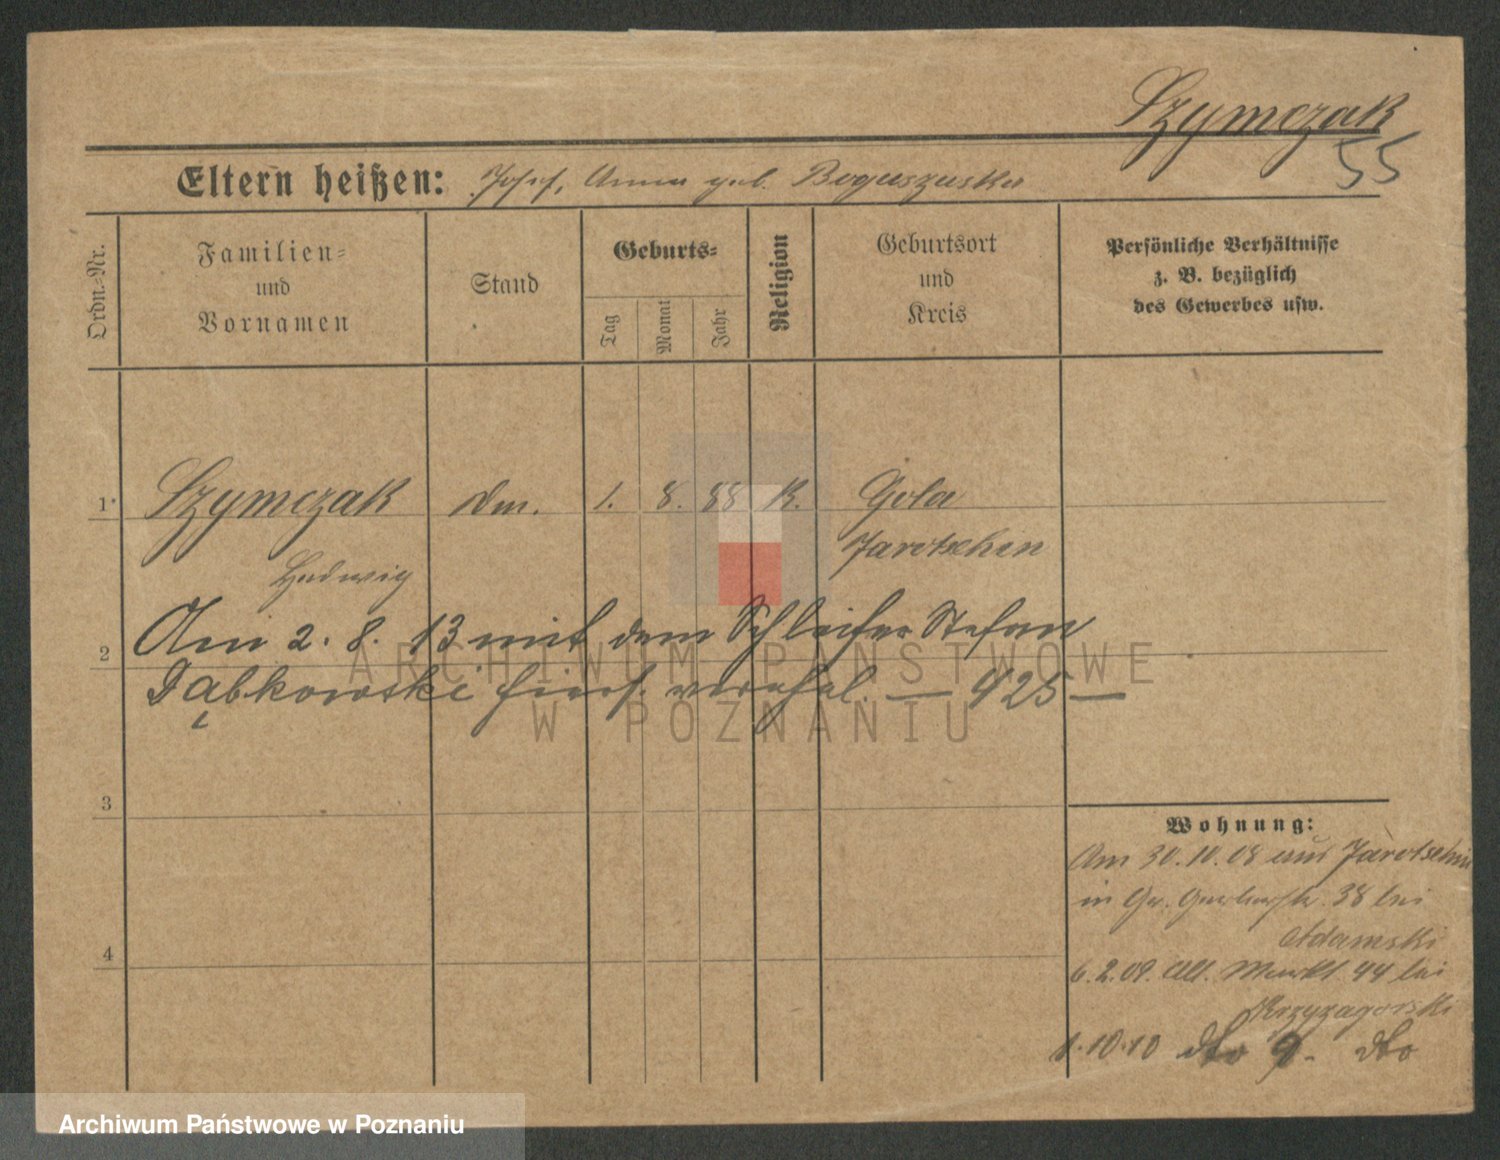 Szymczak
55
Eltern heißen: Josef, Anna geb. Boguszuska
Ordn.-Nr.
Familien-
und
Vornamen
Stand
Geburts-
Tag
Monat
Jahr
Religion
Geburtsort
und
Kreis
Persönliche Verhältnisse
z. B. bezüglich
des Gewerbes usw.
1 Szymczak Dm. 1. 8. 88 K. Gola
Jarotschin
Hedwig
2 Am 2. 8. 13 mit dem Schleifer Stefan
Dąbkowski hiers. verehel. — 925 —
3
4
Wohnung:
Am 30.10.08 aus Jarotschin
in Gr. Gerberstr. 38 bei
Adamski
6.2.09. Alt. Markt 44 bei
Krzyzagorski
1.10.10 dto 9. dto
ARCHIWUM PAŃSTWOWE
W POZNANIU
Archiwum Państwowe w Poznaniu